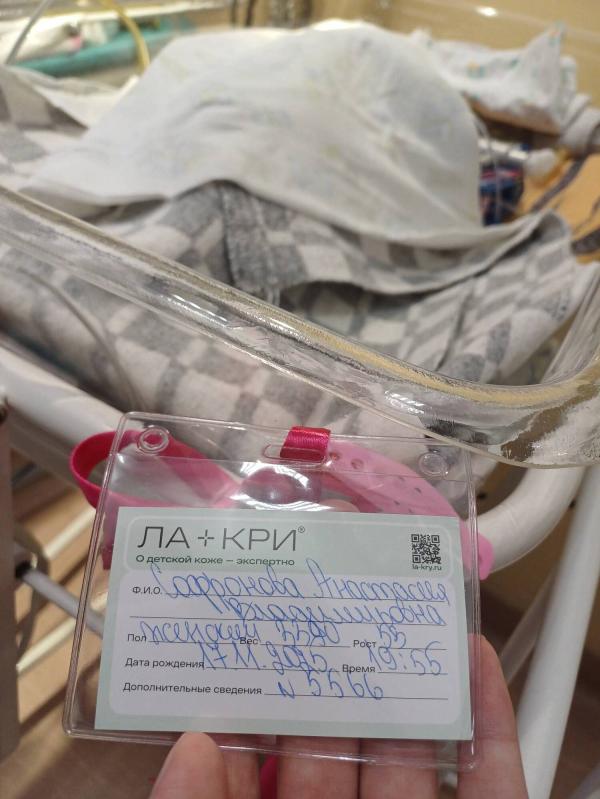 ЛА+КРИ®
О детской коже — экспертно
la-kry.ru
Ф.И.О. Сафронова Анастасия
Владимировна
Пол женский Вес 3580 Рост 53
Дата рождения 17.11.2025 Время 19:55
Дополнительные сведения N 5566